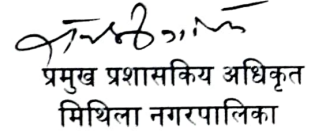 प्रमुख प्रशासकिय अधिकृत
मिथिला नगरपालिका